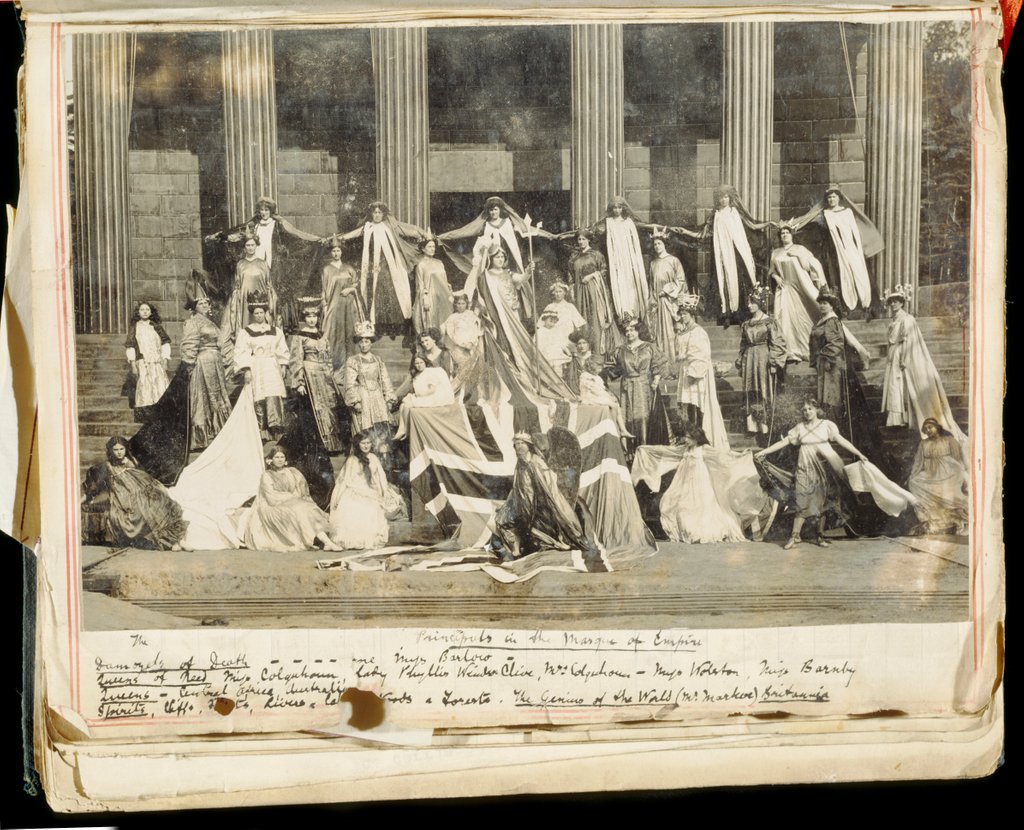 Principals in the Masque of Empire
The
Damozels of Death - - - - me Miss Barlow -
Queens of Need - Miss Colquhoun, Lady Phyllis Windsor Clive, Mrs Colquhoun - Miss Wolston, Miss Barnby
Queens - Central Africa, Australia
Spirits, Cliffs, Rivers & Woods & Forests. The Genius of the World (Mr Markoe) Britannia